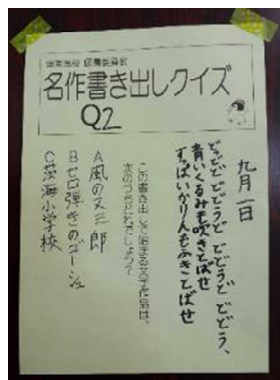 図書委員会
名作書き出しクイズ
Q2
九月一日
どっどど どどうど どどうど どどう、
青いくるみも吹きとばせ
すっぱいかりんもふきとばせ
この書き出しで始まる文学作品は、
次のうちどれでしょう?
A 風の又三郎
B セロ弾きのゴーシュ
C 茨海小学校